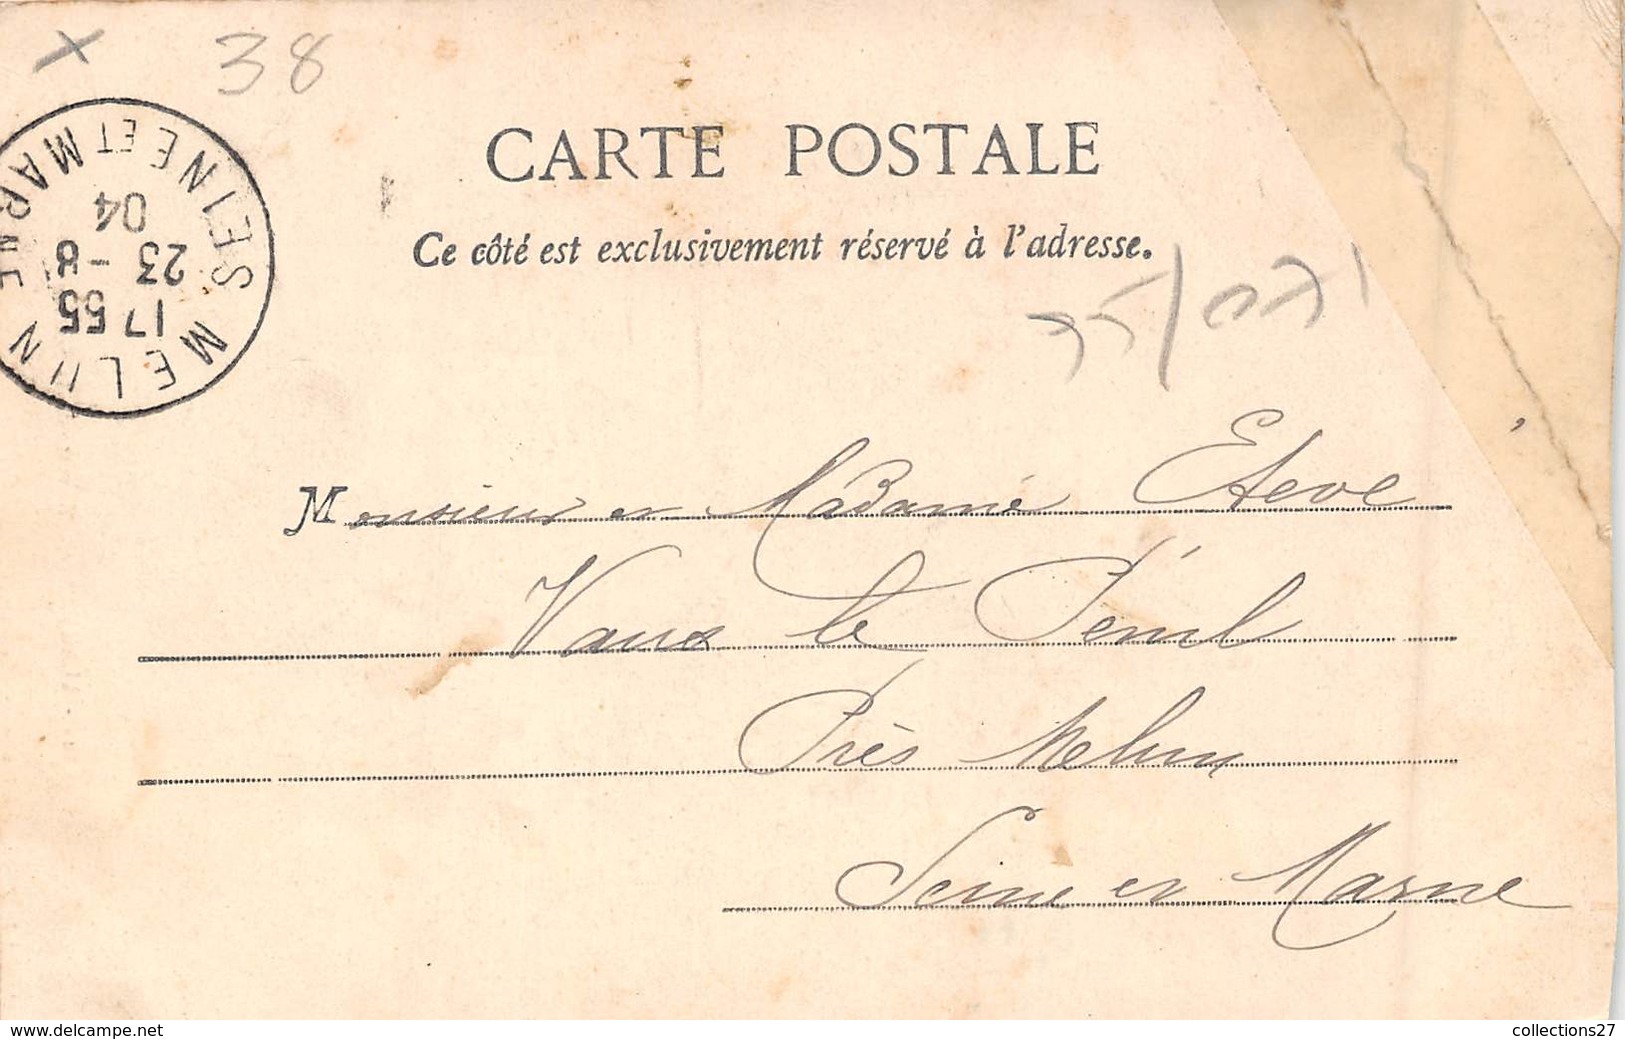 x 38
CARTE POSTALE
Ce côté est exclusivement réservé à l'adresse.
MELUN SEINE ET MARNE
17 55
23 - 8
04
Monsieur et Madame
Vaux le Pénil
Près Melun
Seine et Marne
www.delcampe.net
collections27